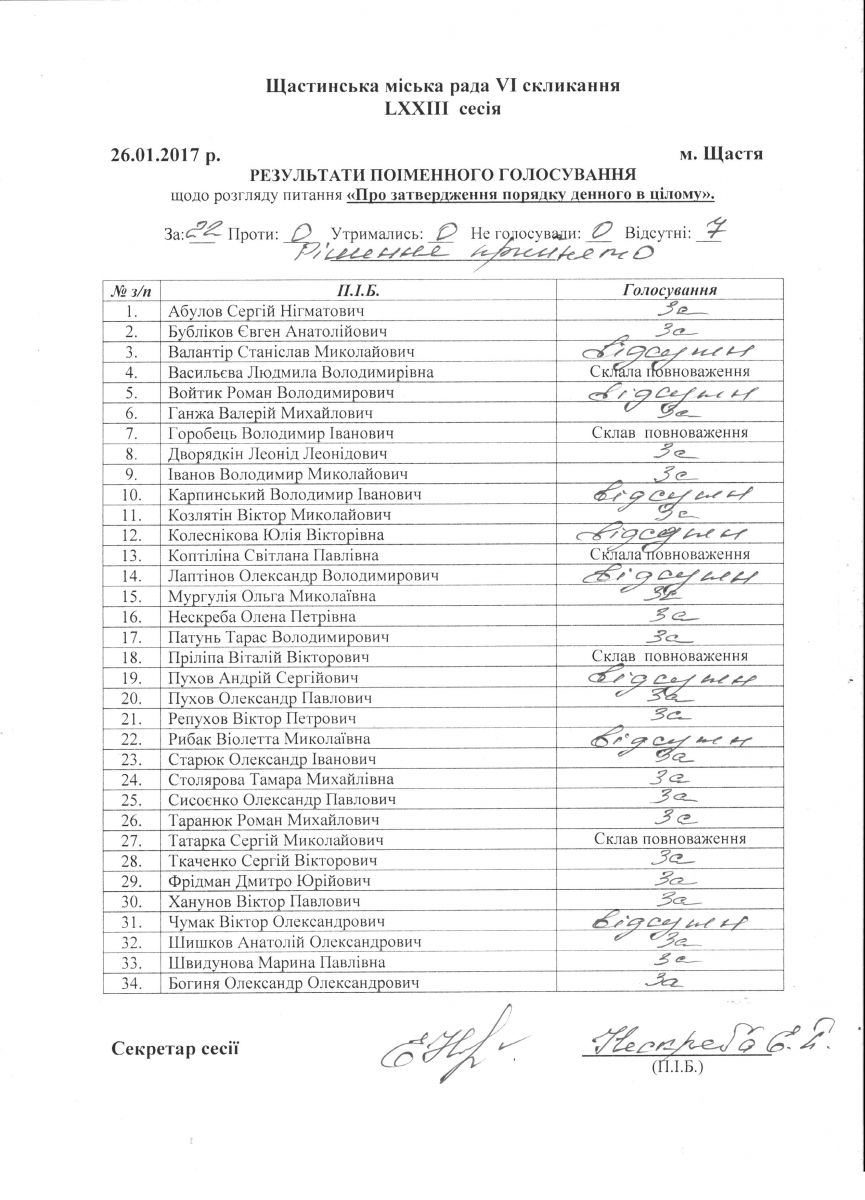 Щастинська міська рада VI скликання
LXXIII сесія
26.01.2017 р. м. Щастя
РЕЗУЛЬТАТИ ПОІМЕННОГО ГОЛОСУВАННЯ
щодо розгляду питання «Про затвердження порядку денного в цілому».
За: 22 Проти: 0 Утримались: 0 Не голосували: 0 Відсутні: 7
Рішення прийнято
№ з/п П.І.Б. Голосування
1. Абулов Сергій Нігматович За
2. Бубліков Євген Анатолійович За
3. Валантір Станіслав Миколайович відсутн
4. Васильєва Людмила Володимирівна Склала повноваження
5. Войтик Роман Володимирович відсутн
6. Ганжа Валерій Михайлович За
7. Горобець Володимир Іванович Склав повноваження
8. Дворядкін Леонід Леонідович За
9. Іванов Володимир Миколайович За
10. Карпинський Володимир Іванович відсутн
11. Козлятін Віктор Миколайович За
12. Колеснікова Юлія Вікторівна відсутн
13. Коптіліна Світлана Павлівна Склала повноваження
14. Лаптінов Олександр Володимирович відсутн
15. Мургулія Ольга Миколаївна За
16. Нескреба Олена Петрівна За
17. Патунь Тарас Володимирович За
18. Пріліпа Віталій Вікторович Склав повноваження
19. Пухов Андрій Сергійович відсутн
20. Пухов Олександр Павлович За
21. Репухов Віктор Петрович За
22. Рибак Віолетта Миколаївна відсутн
23. Старюк Олександр Іванович За
24. Столярова Тамара Михайлівна За
25. Сисоєнко Олександр Павлович За
26. Таранюк Роман Михайлович За
27. Татарка Сергій Миколайович Склав повноваження
28. Ткаченко Сергій Вікторович За
29. Фрідман Дмитро Юрійович За
30. Ханунов Віктор Павлович За
31. Чумак Віктор Олександрович відсутн
32. Шишков Анатолій Олександрович За
33. Швидунова Марина Павлівна За
34. Богиня Олександр Олександрович За
Секретар сесії Нескреба Є. П.
(П.І.Б.)